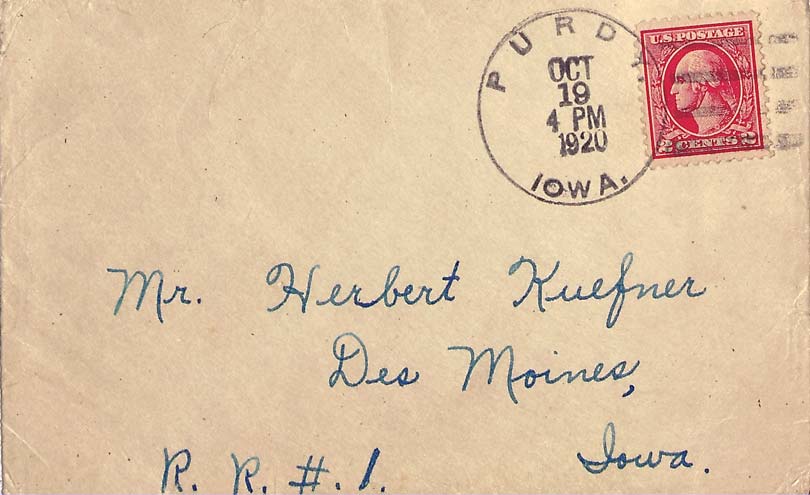 PURDY
OCT
19
4 PM
1920
IOWA.
U.S. POSTAGE
2 CENTS 2
Mr. Herbert Kuefner
Des Moines,
Iowa.
R. R. #. 1.